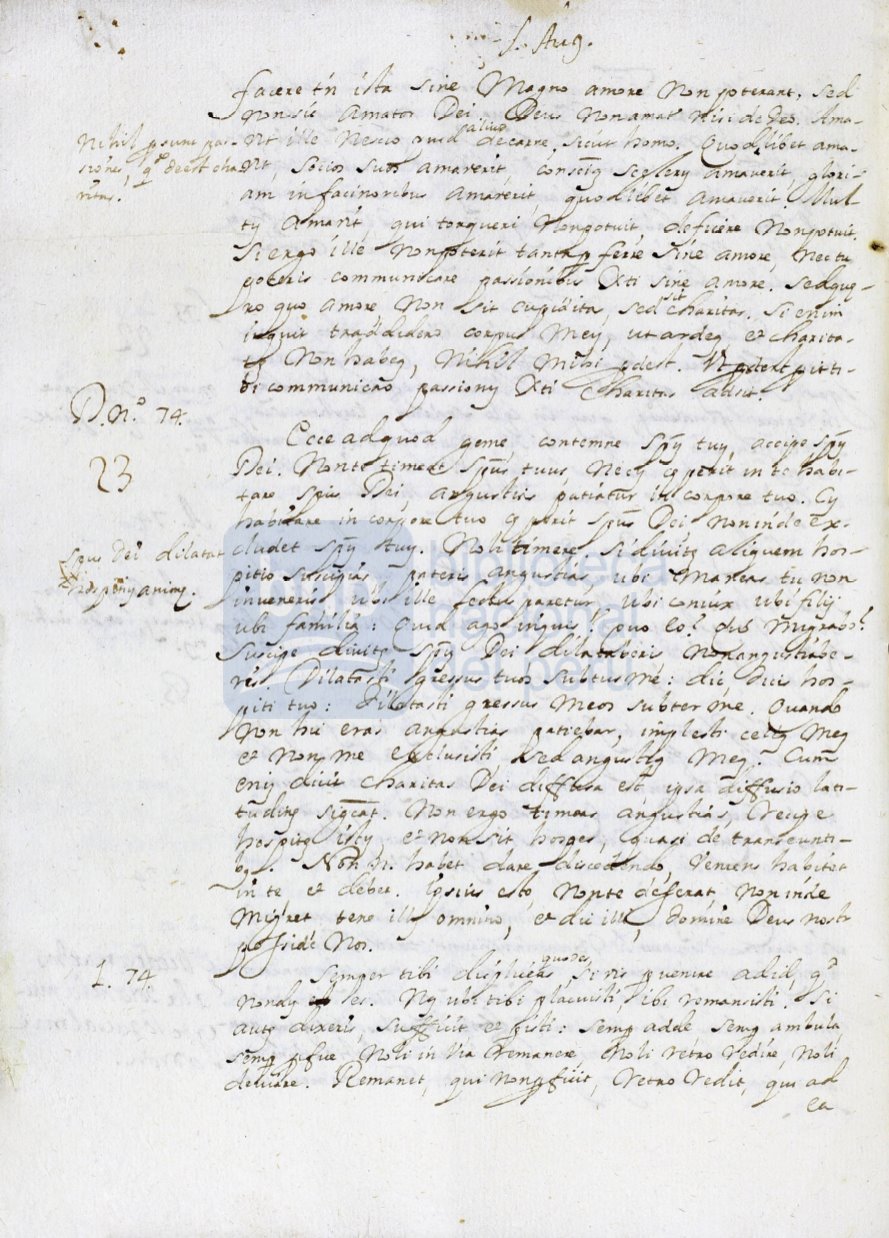 S. Aug.
facere tn ista sine Magno amore Non poterant, sed
non sic Amator Dei Deus non amat nisi de Deo. Ama-
Nihil prsunt pas-
siones, qdo deest cha-
ritas.
vit ille Nescio quid aliud de carne, sicut homo. Quodlibet ama-
vit, Socios suos amaverit, consciā scelerū amaverit, glori-
am in facinoribus amaverit, quodlibet amaverit Mul
tū amavit, qui torqueri Non potuit, deficere Non potuit.
Si ergo ille Non poterit tanta ferre sine amore, Nec tu
poteris communicare passionibus Xti sine amore. Sed quę-
ro quo amore, Non sit cupiditas, sed sit charitas. Si enim
inquit tradidero corpus Meū, ut ardeā, et charita-
tē Non habeā, Nihil Mihi pdest. Vt pdest, tti-
bi communicao passionū Xti Charitas adsit.
D. n.º 74.
Ecce ad quod geme, contemne spm tuū, accipe spm
23
Dei. Non te timeat Spūs tuus, Ne cū cęperit in te habi-
tare spūs Dei, angustias patiatur in corpore tuo. Cū
habitare in corpore tuo cęperit spūs Dei, non inde ex-
Spus Dei dilatat
hospitiū animę.
cludet spm tuū. Noli timere, si divitē aliquem hos-
pitio suscipias, pateris angustias, ubi Maneas tu non
invenies, ubi ille lectus paretur, ubi coniux ubi filij
ubi familia: Quid ago inquis? quo eo? ubi Migrabo?
Suscipe divitē spm Dei dilataberis non angustiabe-
ris. Dilatasti gressus tuos Subtus me: dic, dicis hos-
piti tuo: Dilatasti gressus Meos subter me. Quando
Non hic eras angustias patiebar, implesti cellā Meā
et Non me exclusisti sed angustiā Meā. Cum
enim dicit charitas Dei diffusa est ipsa diffusio lati-
tudinē sigcat. Non ergo timeas angustias, recipe
hospitē istū, et non sit hospes, quasi de transeunti-
bus. Non n. habet dare discedendo, Veniens habitet
in te et debet. Ipsius esto, Non te deserat, Non inde
Migret tene illū omnino, et dic illi, domine Deus noster
posside Nos.
1. 74.
Semper tibi displiceas quod es, si vis pvenire ad id, qd
Nondū es. Nā ubi tibi placuisti, ibi remansisti. Si
autē dixeris, Sufficit et pisti: semp adde, semp ambula,
semp pfice, Noli in Via remanere, Noli retro redire, Noli
deviare. Remanet, qui Non pficit, retro redit, qui ad
ea
biblioteca
nacional
del perú